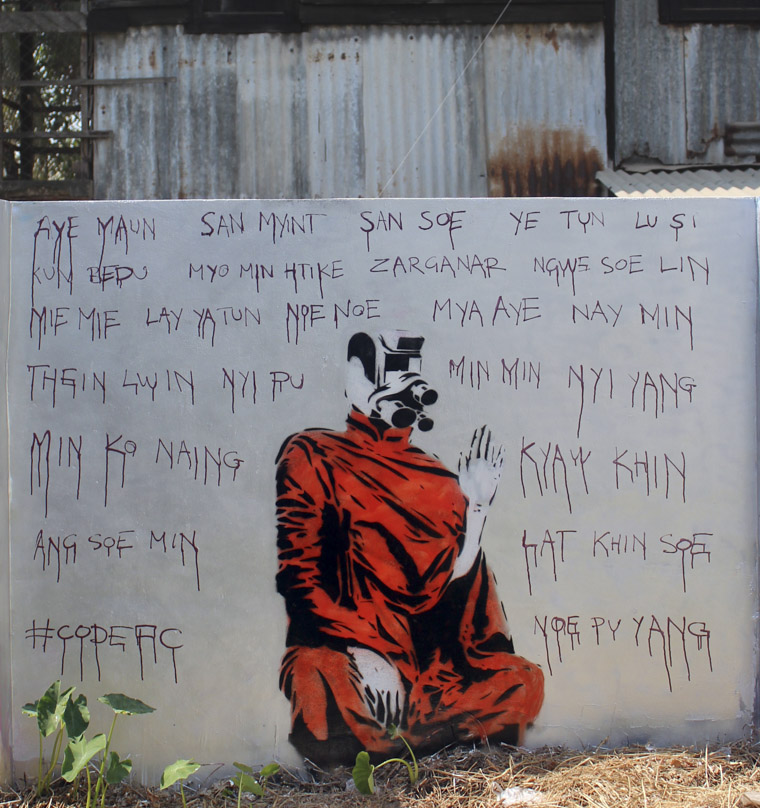 AYE MAUN SAN MYINT SAN SOE YE TUN LU SI
KUN BEDU MYO MIN HTIKE ZARGANAR NGWE SOE LIN
MIE MIE LAY YA TUN NOE NOE MYA AYE NAY MIN
THEIN LWIN NYI PU MIN MIN NYI YANG
MIN KO NAING KYAW KHIN
ANG SOE MIN LAT KHIN SOE
#CODEFC NOE PU YANG